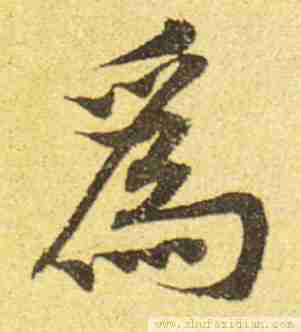 爲
www.shufazidian.com